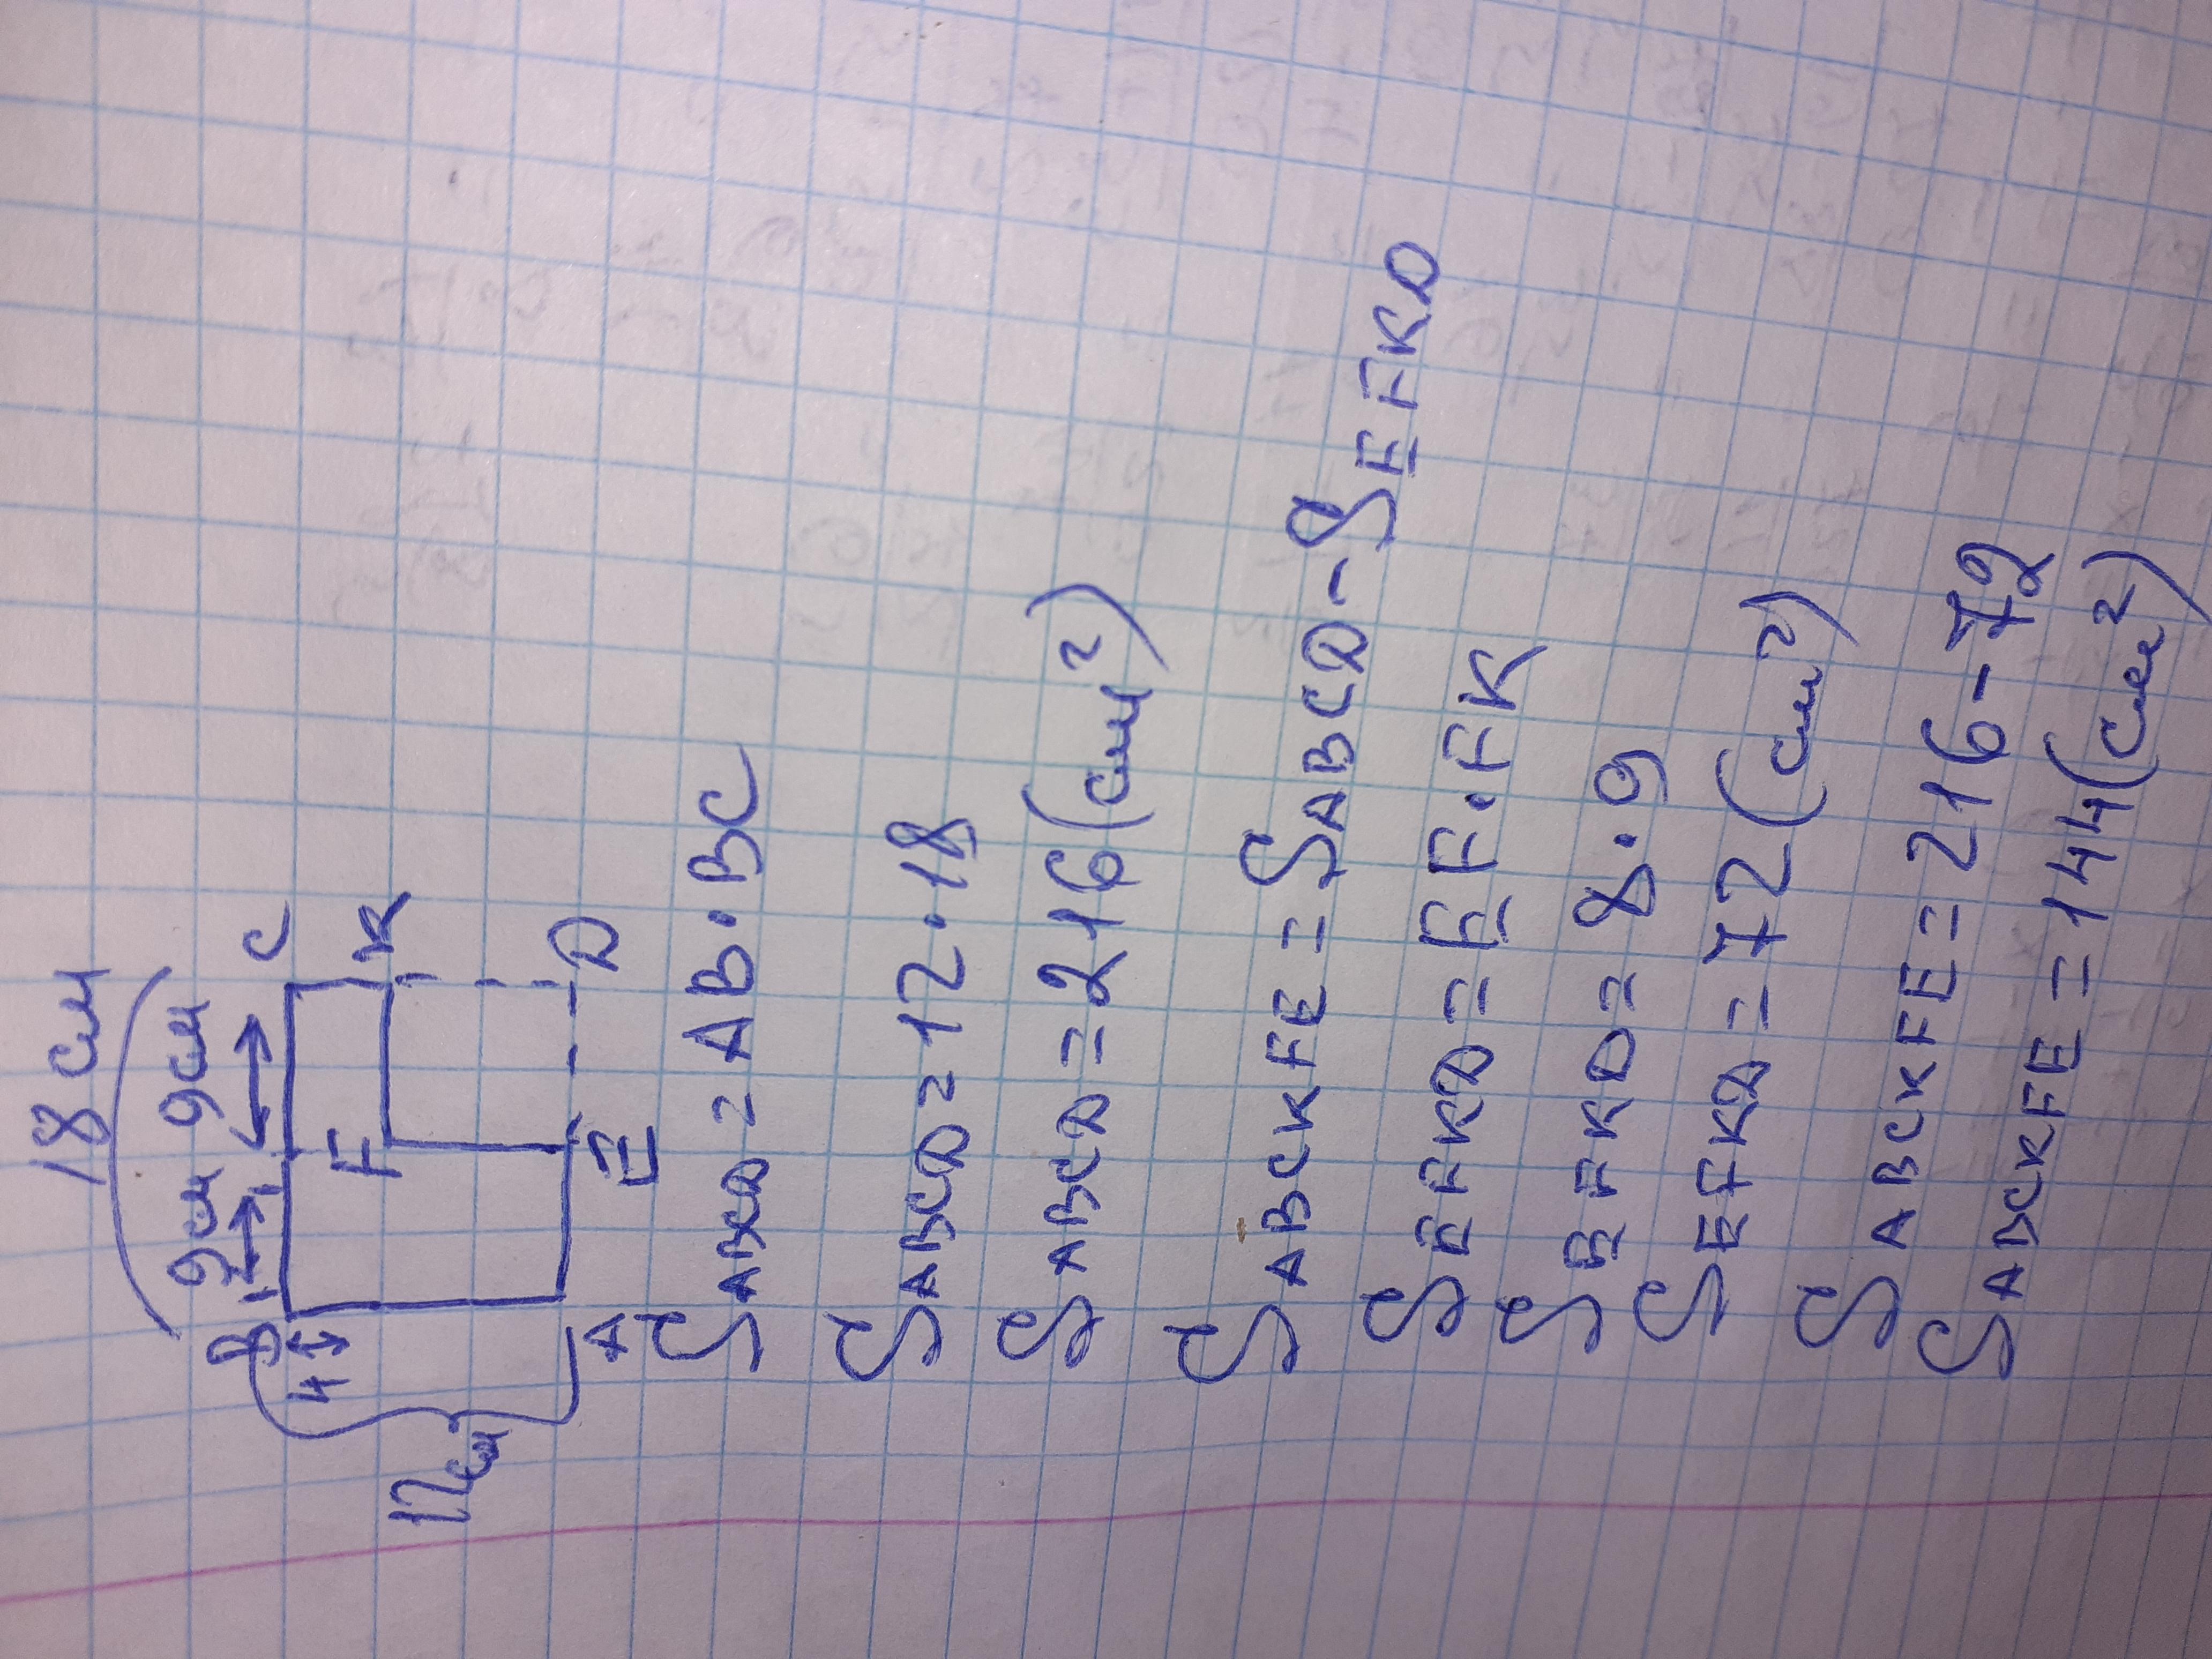 18 см
9см 9см
B C
4
F K
12см
A E D
SABCD = AB · BC
SABCD = 12 · 18
SABCD = 216 (см²)
SABCKFE = SABCD - SEFKD
SEFKD = EF · FK
SEFKD = 8 · 9
SEFKD = 72 (см²)
SABCKFE = 216 - 72
SABCKFE = 144 (см²)